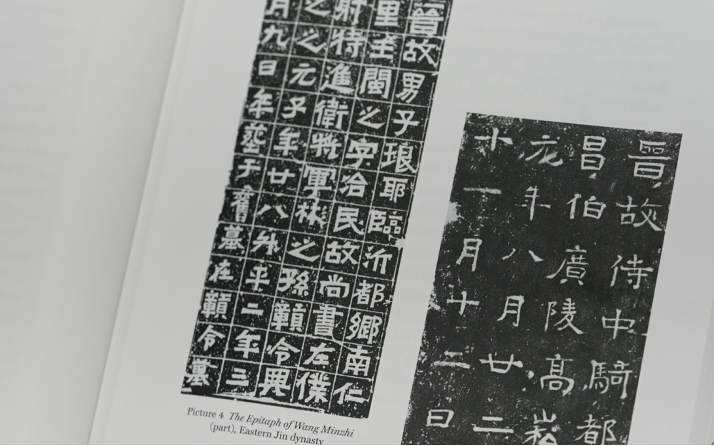 晉故男子琅耶臨沂都鄉南仁
里王閩之字冶民故尚書左僕
射特進衛將軍彬之孫贛令興
之之元子年廿八升平二年三
月九日卒葬于舊墓在贛令墓
Picture 4 The Epitaph of Wang Minzhi
(part), Eastern Jin dynasty
晉故侍中騎都
昌伯廣陵高崧
元年八月廿二
十一月十二日